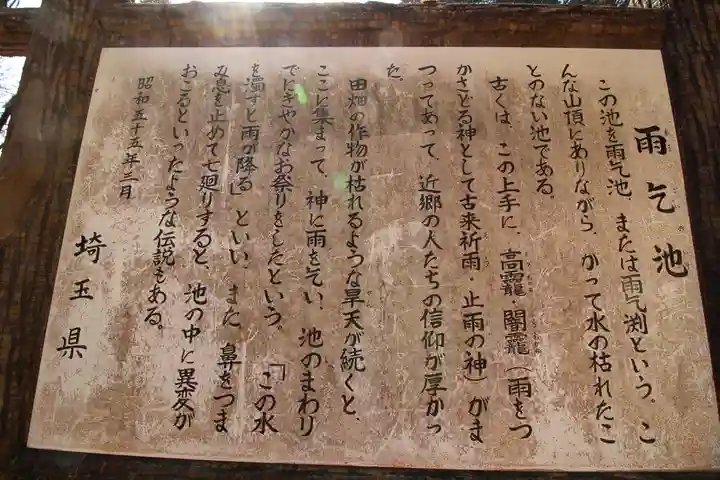 雨乞池
この池を雨乞池、または雨乞渕という。こ
んな山頂にありながら、かつて水の枯れたこ
とのない池である。
古くは、この上手に、高龗、闇龗（雨をつ
かさどる神として古来祈雨・止雨の神）がま
つってあって、近郷の人たちの信仰が厚かっ
た。
田畑の作物が枯れるような旱天が続くと、
ここに集まって、神に雨を乞い、池のまわり
でにぎやかなお祭りをしたという。「この水
を濁すと雨が降る」といい、また、鼻をつま
み息を止めて七廻りすると、池の中に異変が
おこるといったような伝説もある。
昭和五十五年三月
埼玉県